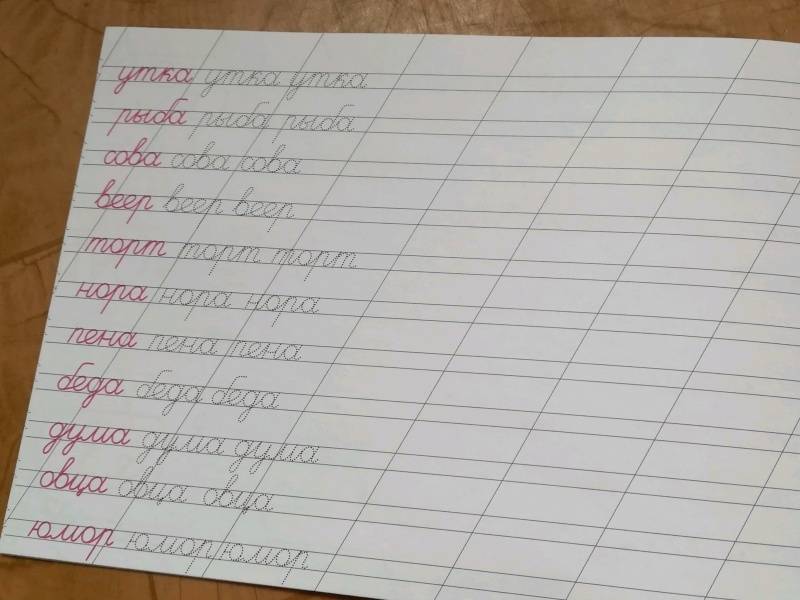 утка утка утка
рыба рыба рыба
сова сова сова
веер веер веер
торт торт торт
нора нора нора
пена пена пена
беда беда беда
дума дума дума
овца овца овца
юмор юмор юмор